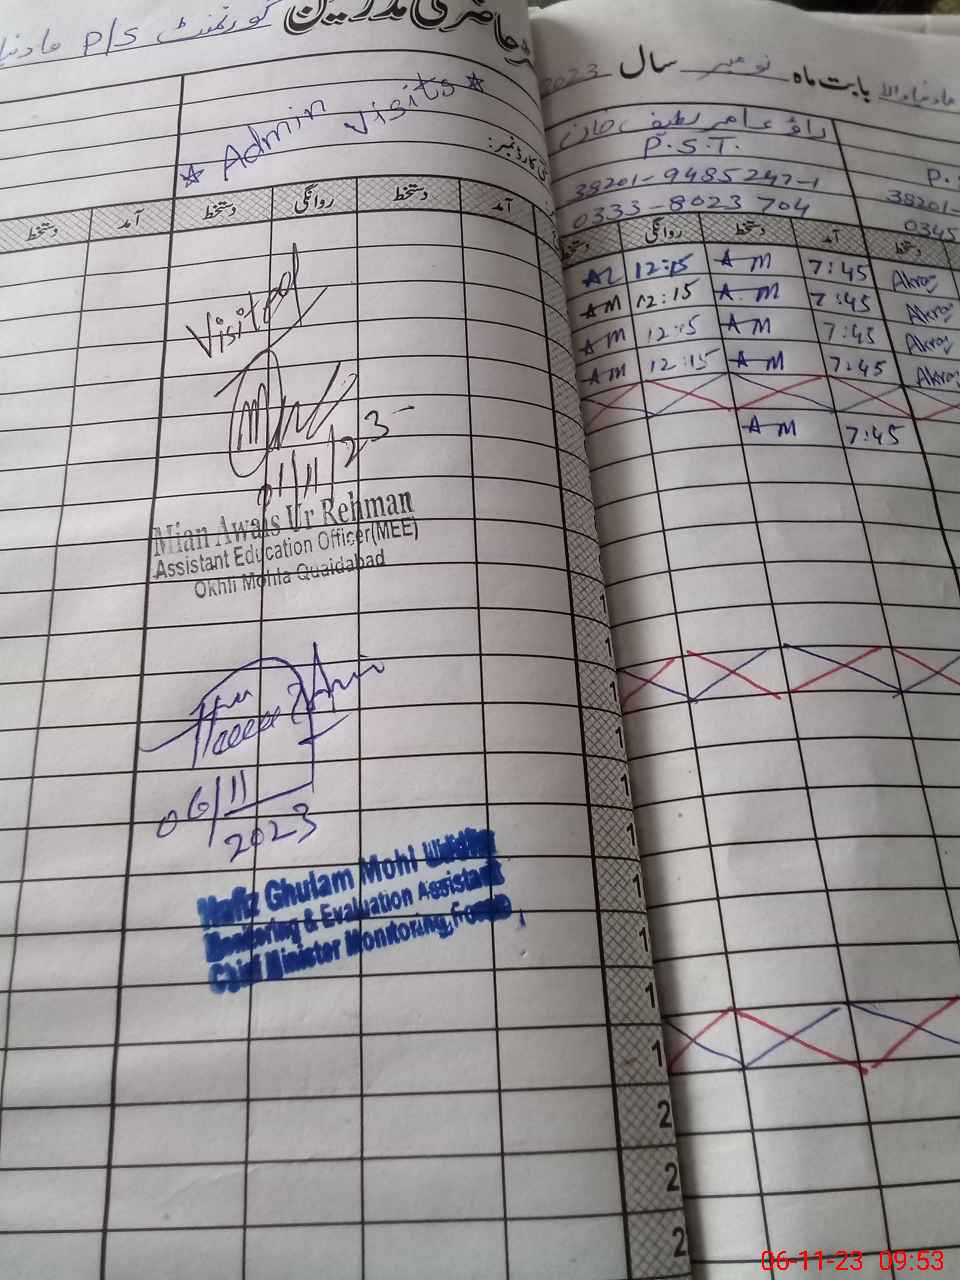 حاضری مدرسین
گورنمنٹ P/S
★ Admin Visits ★
کارڈ نمبر:
دستخط آمد دستخط روانگی دستخط آمد
Visited
01/11/23
Mian Awais Ur Rehman
Assistant Education Officer(MEE)
Okhli Mohla Quaidabad
06/11/2023
Hafiz Ghulam Mohi
Monitoring & Evaluation Assistant
Chief Minister Monitoring Force
بابت ماہ نومبر سال 2023
راؤ عامر لطیف خان
P.S.T.
38201-9485247-1 38201-
0333-8023704 0345
دستخط روانگی دستخط آمد دستخط
AL 12:15 AM 7:45 Akram
AM 12:15 AM 7:45 Akram
AM 12:15 AM 7:45 Akram
AM 12:15 AM 7:45 Akram
AM 7:45
1
1
1
1
1
1
1
1
1
1
2
2
2
06-11-23 09:53